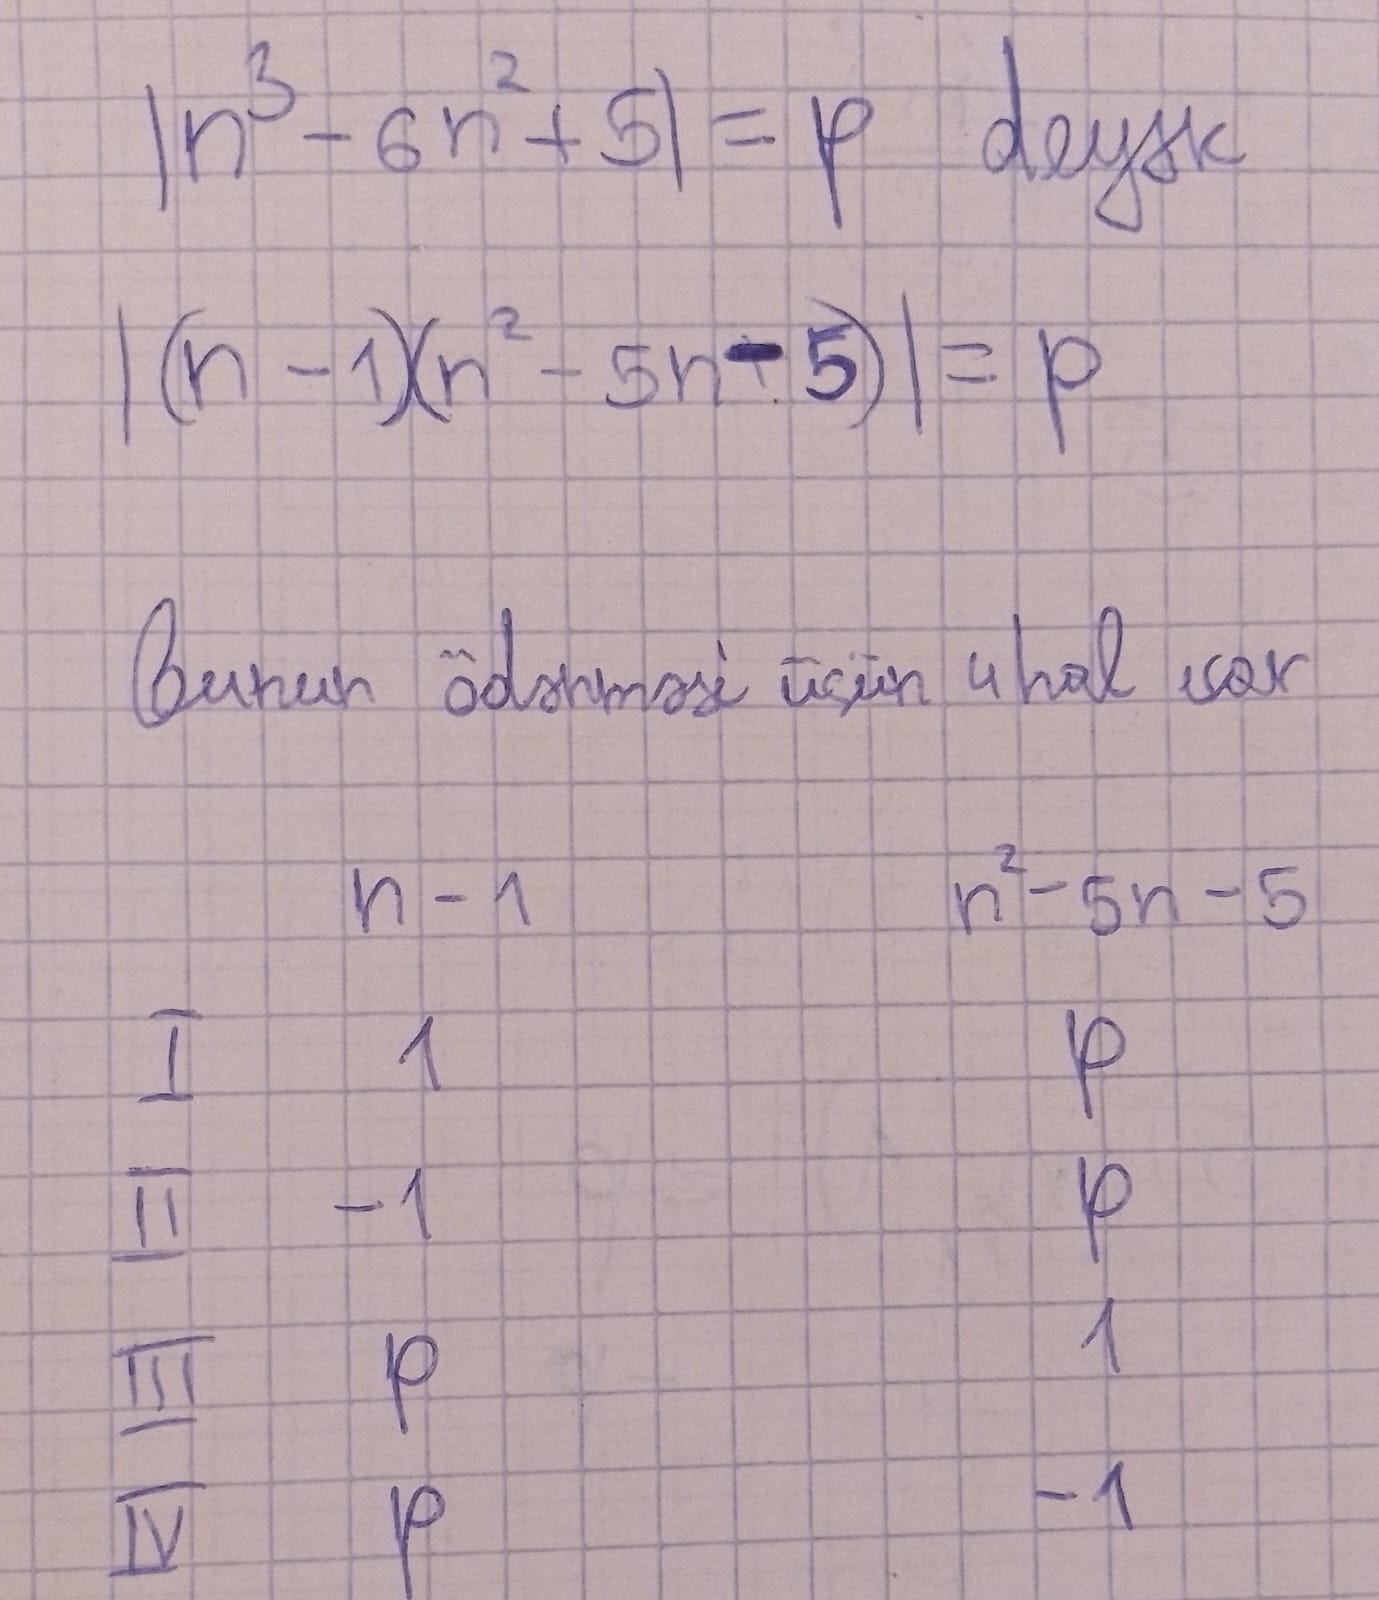 |n³ - 6n² + 5| = p deyək
|(n - 1)(n² - 5n - 5)| = p
Bunun ödənməsi üçün 4 hal var
n - 1 n² - 5n - 5
I 1 p
II -1 p
III p 1
IV p -1